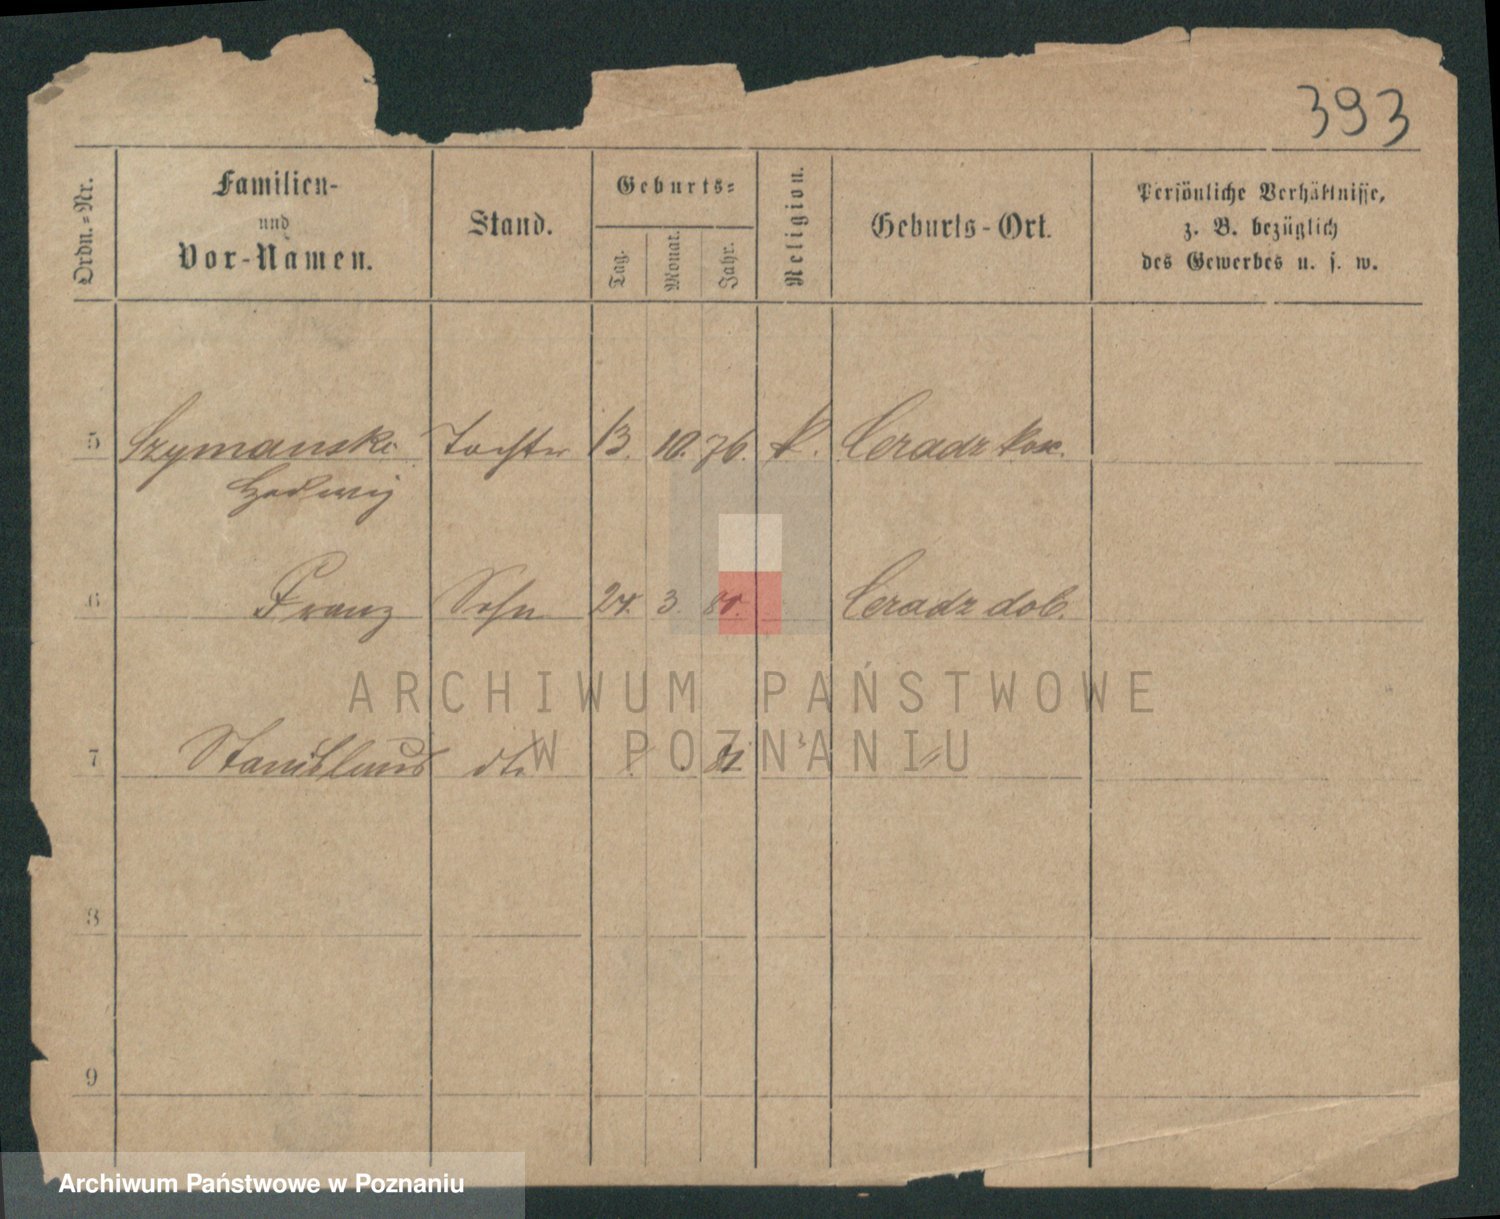 393
Ordn.-Nr.
Familien-
und
Vor-Namen.
Stand.
Geburts-
Tag.
Monat.
Jahr.
Religion.
Geburts-Ort.
Persönliche Verhältnisse,
z. B. bezüglich
des Gewerbes u. s. w.
5 Szymanski Tochter 13. 10. 76. k. Ceradz kos.
Hedwig
6 Franz Sohn 24. 3. 80. Ceradz dob.
7 Stanislaus dto "
8
9
ARCHIWUM PAŃSTWOWE
W POZNANIU
Archiwum Państwowe w Poznaniu